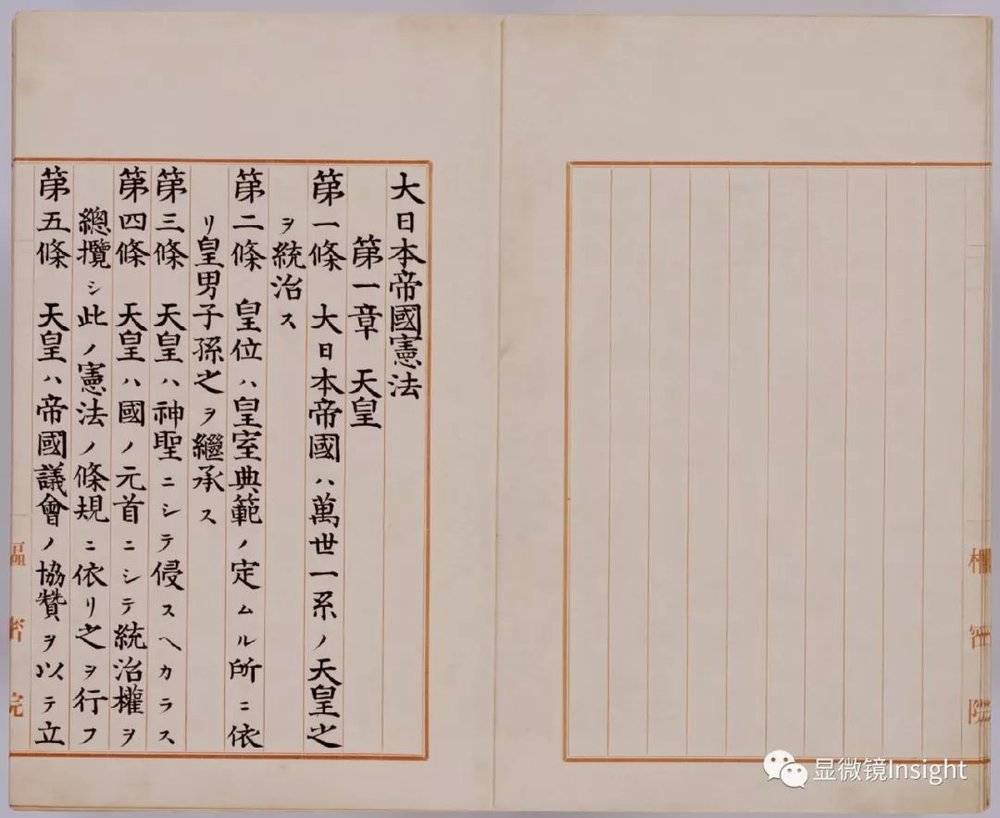 大日本帝國憲法
第一章 天皇
第一條 大日本帝國ハ萬世一系ノ天皇之
ヲ統治ス
第二條 皇位ハ皇室典範ノ定ムル所ニ依
リ皇男子孫之ヲ繼承ス
第三條 天皇ハ神聖ニシテ侵スヘカラス
第四條 天皇ハ國ノ元首ニシテ統治權ヲ
總攬シ此ノ憲法ノ條規ニ依リ之ヲ行フ
第五條 天皇ハ帝國議會ノ協賛ヲ以テ立
樞密院
樞密院
显微镜Insight